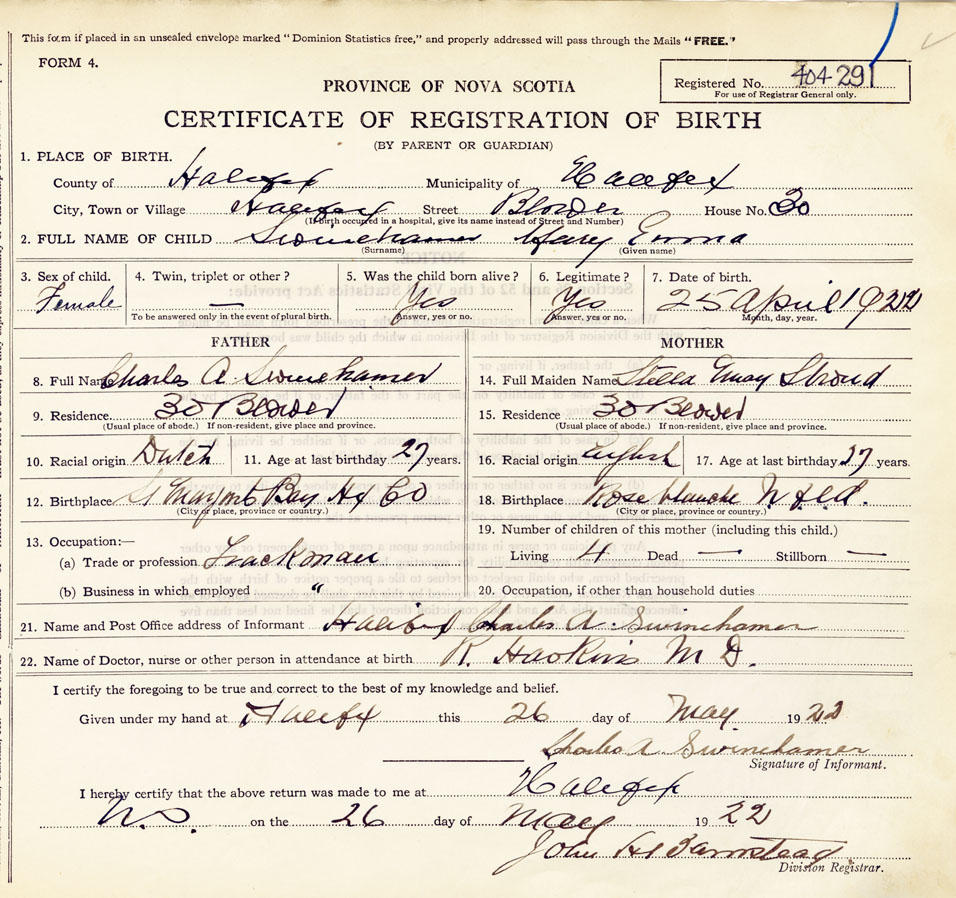 This form if placed in an unsealed envelope marked "Dominion Statistics free," and properly addressed will pass through the Mails "FREE."
FORM 4.
Registered No. 404291
For use of Registrar General only.
PROVINCE OF NOVA SCOTIA
CERTIFICATE OF REGISTRATION OF BIRTH
(BY PARENT OR GUARDIAN)
1. PLACE OF BIRTH.
County of Halifax Municipality of Halifax
City, Town or Village Halifax Street House No. 30
(If birth occurred in a hospital, give its name instead of Street and Number)
2. FULL NAME OF CHILD Swinehamer Mary Emma
(Surname) (Given name)
3. Sex of child. 4. Twin, triplet or other? 5. Was the child born alive? 6. Legitimate? 7. Date of birth.
Female — Yes Yes 25 April 1922
To be answered only in the event of plural birth. Answer, yes or no. Answer, yes or no. Month, day, year.
FATHER MOTHER
8. Full Name Charles A Swinehamer 14. Full Maiden Name Stella May Stroud
9. Residence. 30 15. Residence 30
(Usual place of abode.) If non-resident, give place and province. (Usual place of abode.) If non-resident, give place and province.
10. Racial origin Dutch 11. Age at last birthday 27 years. 16. Racial origin English 17. Age at last birthday 27 years.
12. Birthplace St Margts Bay Hx Co 18. Birthplace Rose blanche Nfld.
(City or place, province or country.) (City or place, province or country.)
19. Number of children of this mother (including this child.)
13. Occupation:—
(a) Trade or profession Trackman Living 4 Dead — Stillborn —
(b) Business in which employed " 20. Occupation, if other than household duties
21. Name and Post Office address of Informant Halifax Charles A. Swinehamer
22. Name of Doctor, nurse or other person in attendance at birth R. Haskins M D.
I certify the foregoing to be true and correct to the best of my knowledge and belief.
Given under my hand at Halifax this 26 day of May 1922
Charles A Swinehamer
Signature of Informant.
I hereby certify that the above return was made to me at Halifax
N.S. on the 26 day of May 1922
John H Barnstead
Division Registrar.